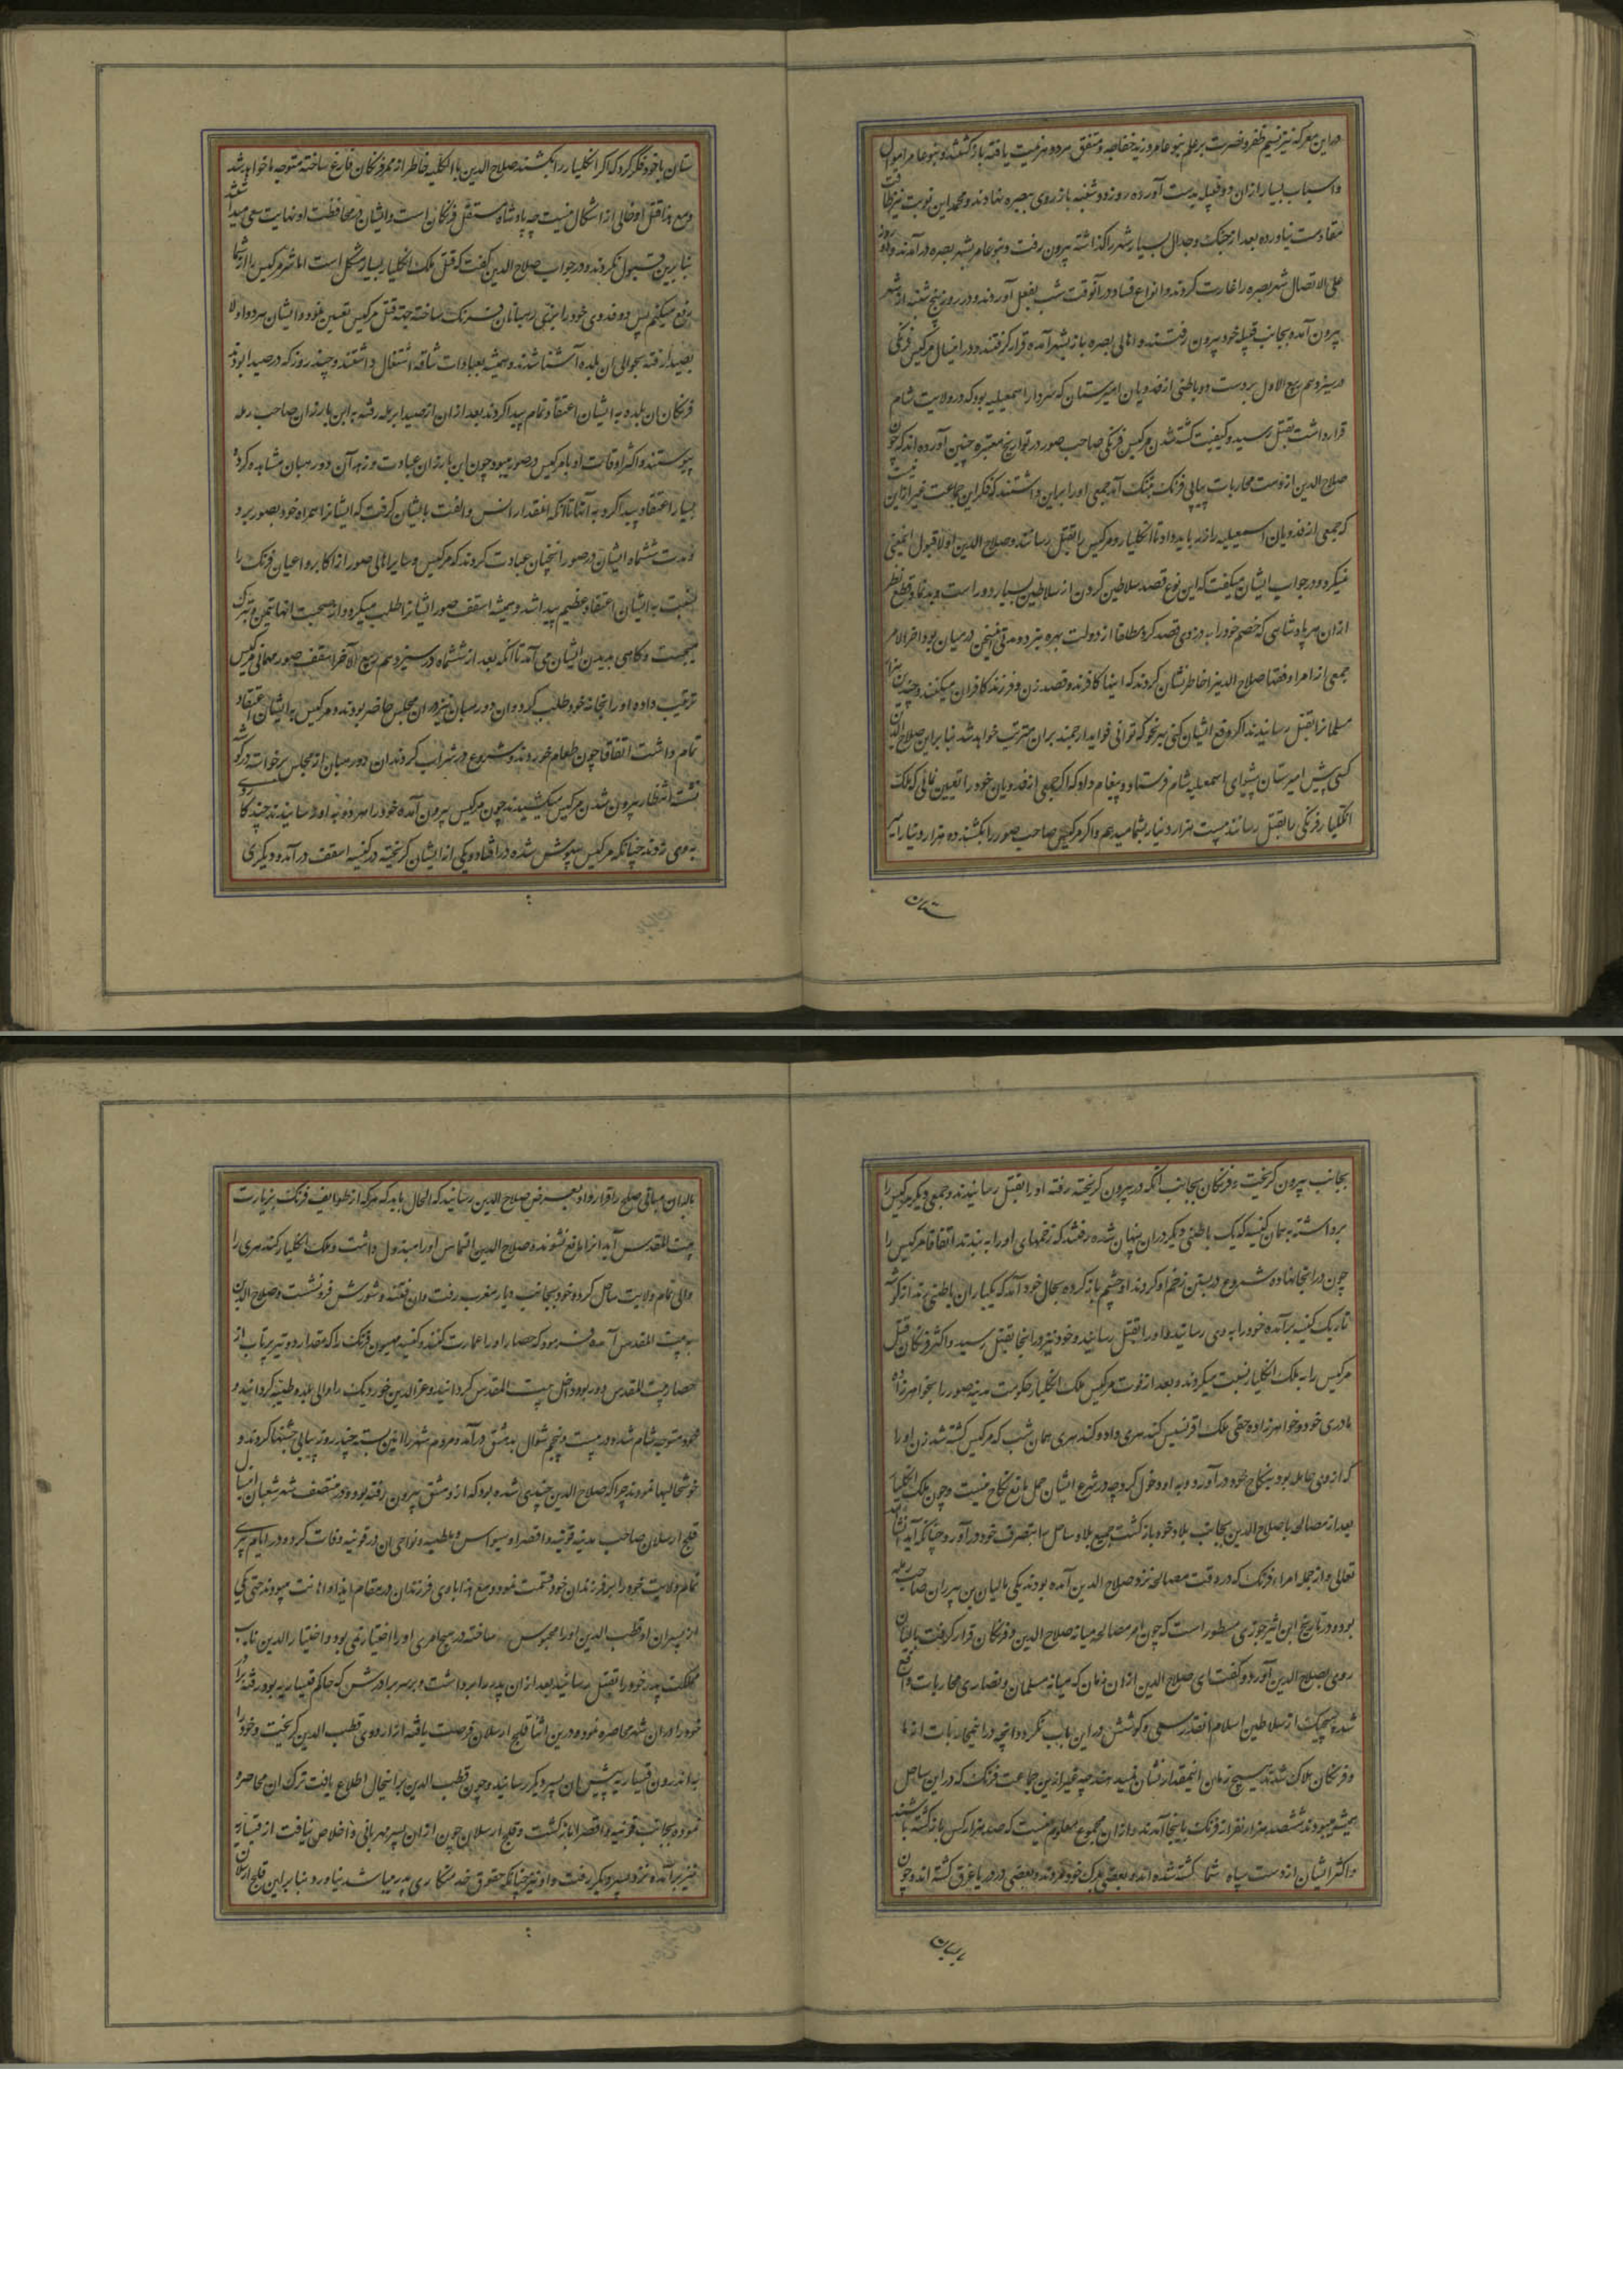 در این معرکه نیز نسیم ظفر و نصرت بر علم بنو عامر وزیده خفاجه و متفق هر دو هزیمت یافته باز کشتند و بنو عامر اموال
و اسباب بسیار ازان دو قبیله بدست آورده روز دوشنبه باز روی ببصره نهادند و محمد این نوبت نیز طاقت
مقاومت نیاورده بعد از جنک و جدال بسیار شهر را کذاشته بیرون رفت و بنو عامر بشهر بصره در آمدند و دو روز
علی الاتصال شهر بصره را غارت کردند و انواع فساد در آنوقت شب بفعل آوردند و در روز پنج شنبه از شهر
بیرون آمده بجانب قبیله خود بیرون رفتند و اهالی بصره باز بشهر آمده قرار کرفتند و در این سال مرکیس فرنکی
در سیزدهم ربیع الاول بر دست دو باطنی از فدویان امیر ستان که سردار اسمعیلیه بود که در ولایت شام
قرار داشت بقتل رسید و کیفیت کشته شدن مرکیس فرنکی صاحب صور در تواریخ معتبره چنین آورده اند که چون
صلاح الدین از دست محاربات پیاپی فرنک بتنک آمد جمعی او را براین داشتند که فکر این جماعت غیر ازین نیست
که جمعی از فدویان اسمعیلیه را زر باید داد تا انکلیار و مرکیس را بقتل رسانند و صلاح الدین اولا قبول اینمعنی
نمیکرد و در جواب ایشان میکفت که این نوع قصد سلاطین کردن از سلاطین بسیار دور است و بد نما و قطع نظر
ازان هر پادشاهی که خصم خود را به دزدی قصد کرد مطلقا از دولت بهره نبرد و مدتی این سخن در میان بود اخر الامر
جمعی از امرا و فقها صلاح الدین را خاطرنشان کردند که اینها کافرند و قصد زن و فرزند کافران میکنند و چندین هزار
مسلمانرا بقتل رسانیدند اکر دفع ایشان کنی بهر نحو که توانی فواید ارجمند بران مترتب خواهد شد بنابراین صلاح الدین
کسی پیش امیر ستان پیشوای اسمعیلیه شام فرستاد و پیغام داد که اکر جمعی از فدویان خود را تعیین نمائی که ملک
انکلیار فرنکی را بقتل رسانند بیست هزار دینار بشما میدهم و اکر مرکیس صاحب صور را بکشند ده هزار دینار امیر
ستان
ستان با خود فکر کرد که اکر انکلیار را بکشند صلاح الدین بالکلیه خاطر از ممر فرنکان فارغ ساخته متوجه ما خواهد شد
و مع هذا قتل او خالی از اشکال نیست چه پادشاه مستقل فرنکان است و ایشان در محافظت او نهایت سعی میداشتند
بنا برین قبول نکردند و در جواب صلاح الدین کفت که قتل ملک انکلیار بسیار مشکل است اما شر مرکیس را از شما
دفع میکنم پس دو فدوی خود را بزی رهبانان فرنک ساخته جهته قتل مرکیس تعیین نمود و ایشان هر دو اولا
بصیدا رفته بحوالی ان بلده آشنا شدند و همیشه بعبادات شاقه اشتغال داشتند و چند روز که در صیدا بودند
فرنکان ان بلده به ایشان اعتقاد تمام پیدا کردند بعد ازان از صیدا برمله رفته به ابن بارزان صاحب رمله
پیوستند و اکثر اوقات او با مرکیس در صور میبود چون ابن بارزان عبادت و زهد آن دو رهبان مشاهده کرد
بسیار اعتقاد پیدا کرد به آنها تا آنکه انقدار انس و الفت بایشان کرفت که ایشانرا همراه خود بصور برد
و مدت ششماه ایشان در صور انچنان عبادت کردند که مرکیس و سایر اهالی صور از اکابر و اعیان فرنک را
نسبت به ایشان اعتقاد عظیم پیدا شد و همیشه اسقف صور ایشانرا طلب میکرد و از صحبت انها تیمن و تبرک
میجست و کاهی بدیدن ایشان می آمد تا آنکه بعد از ششماه در سیزدهم ربیع الاخر اسقف صور مهمانی مرکیس
ترتیب داد و او را بخانه خود طلب کرد و ان دو رهبان نیز در ان مجلس حاضر بودند و مرکیس به ایشان اعتقاد
تمام داشت اتفاقا چون طعام خوردند و شروع در شراب کردند ان دو رهبان از مجلس برخواسته در کوشه
نشسته انتظار بیرون شدن مرکیس میکشیدند چون مرکیس بیرون آمد خود را هر دو به او رسانیدند چند کارد
به وی زدند چنانکه مرکیس بیهوش شده در افتاد و یکی از ایشان کریخته در کنیسه اسقف در آمد و دیکری
بجانب بیرون کریخت فرنکان بجانب انکه در بیرون کریخته رفته او را بقتل رسانیدند و جمعی دیکر مرکیس را
برداشته به همان کنیسه که یک باطنی دیکر دران پنهان شده رفتند که زخمهای او را به بندند اتفاقا مرکیس را
چون در انجا نهاده شروع در بستن زخم او کردند او چشم باز کرده بحال خود آمد که یکبار ان باطنی تند از کوشه
تاریک کنیسه برآمده خود را به وی رسانید و او را بقتل رسانید و خود نیز در انجا بقتل رسید و اکثر فرنکان قتل
مرکیس را به ملک انکلیار نسبت میکردند و بعد از فوت مرکیس ملک انکلیار حکومت مدینه صور را بخواهرزاده
مادری خود و خواهرزاده حقی ملک افرنسیس کندهری داد و کندهری همان شب که مرکیس کشته شد زن او را
که از وی حامله بود بنکاح خود در آورد و به او دخول کرد چه در شرع ایشان حمل مانع نکاح نیست و چون ملک انکلیار
بعد از مصالحه با صلاح الدین بجانب بلاد خود بازکشت جمیع بلاد ساحل را بتصرف خود در آورد چنانکه آید انشا الله
تعالی و از جمله امرای فرنک که در وقت مصالحه نزد صلاح الدین آمده بودند یکی بالیان بن بیرزان صاحب رمله
بود و در تاریخ ابن اثیر جزری مسطور است که چون امر مصالحه میانه صلاح الدین و فرنکان قرار کرفت بالیان
روی بصلاح الدین آورد و کفت ای صلاح الدین ازان زمان که میانه مسلمان و نصاری محاربات واقع
شد هیچیک از سلاطین اسلام انقدر سعی و کوشش در این باب نکرد و انچه در این محاربات از ما
و فرنکان هلاک شدند هیچ زمان اینمقدار نشان نمیدهند چه غیر ازین جماعت فرنک که در این ساحل
همیشه میبودند ششصد هزار نفر از فرنک باینجا آمدند و ازان مجموع معلوم نیست که صد هزار کس باز کشته باشند
و اکثر ایشان از دست سپاه شما کشته شده اند و بعضی بمرک خود مردند و بعضی در دریا غرق کشته اند و چون
بالیان
بالیان مبانی صلح را قرار داد بعرض صلاح الدین رسانید که الحال باید که هر که از طوایف فرنک بزیارت
بیت المقدس آید انرا مانع نشوند و صلاح الدین التماس او را مبذول داشت و ملک انکلیار کندهری را
والی تمام ولایت ساحل کرده خود بجانب دیار مغرب رفت و ان فتنه و شورش فرو نشست و صلاح الدین
به بیت المقدس آمده فرمود که حصار او را عمارت کنند و کنیسه صهیون فرنک را که مقدار دو تیر پرتاب از
حصار بیت المقدس دور بود داخل بیت المقدس کردانید و عزالدین خوردیک را والی بلده طیبه کردانید و
خود متوجه شام شد و در بیست و پنجم شوال بدمشق در آمد و مردم شهر را آئین بسته چند روز پیاپی جشنها کردند و
خوشحالیها نمودند چرا که صلاح الدین چندی شده بود که از دمشق بیرون رفته بود و در منتصف شهر شعبان امسال
قلج ارسلان صاحب مدینه قونیه و اقصرا و سیواس و ملطیه و نواحی ان در قونیه وفات کرد و در ایام پیری
تمام ولایت خود را بر فرزندان خود قسمت نمود و مع هذا با وی فرزندان در مقام ایذا و اهانت میبودند حتی یکی
از پسران او قطب الدین او را محبوس ساخته در هیچ امری او را اختیار نمی بود و اختیار الدین نایب
مملکت پدر خود را بقتل رسانید بعد ازان پدر را برداشت و بر سر برادرش که حاکم قیساریه بود رفته برادر
خود را در ان شهر محاصره نمود و درین اثنا قلج ارسلان فرصت یافته از اردوی قطب الدین کریخت و خود را
به اندرون قیساریه پیش ان پسر دیکر رسانید و چون قطب الدین بر اینحال اطلاع یافت ترک ان محاصره
نموده بجانب قونیه و اقصرا بازکشت و قلج ارسلان چون ازان پسر مهربانی و اخلاص نیافت از قیساریه
نیز برآمده نزد پسر دیکر رفت و او نیز چنانکه حقوق خدمتکاری پدر میباشد بجا نیاورد و بنابراین قلج ارسلان